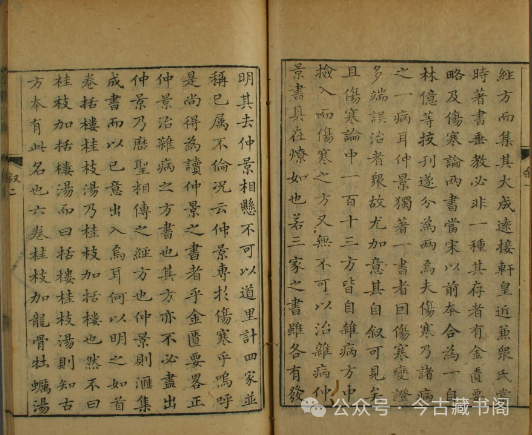 經方而集其大成遠接軒皇近兼衆氏當
時著書垂教必非一種其存者有金匱要
略及傷寒論兩書當宋以前本合為一自
林億等挍刋遂分為兩焉夫傷寒乃諸病
之一病耳仲景獨著一書者因傷寒變證
多端誤治者衆故尤加意其自叙可見矣
且傷寒論中一百十三方皆自雜病方中
撿入而傷寒之方又無不可以治雜病仲
景書具在燎如也若三家之書雖各有發
明其去仲景相懸不可以道里計四家並
稱已属不倫况云仲景專於傷寒乎嗚呼
是尚得為讀仲景之書者乎金匱要畧正
仲景治雜病之方書也其方亦不必盡出
仲景乃歷聖相傳之經方也仲景則滙集
成書而以己意出入焉耳何以明之如首
卷括樓桂枝湯乃桂枝加括樓也然不曰
桂枝加括樓湯而曰括樓桂枝湯則知古
方本有此名也六卷桂枝加龍骨牡蠣湯
叙二
公众号·今古藏书阁